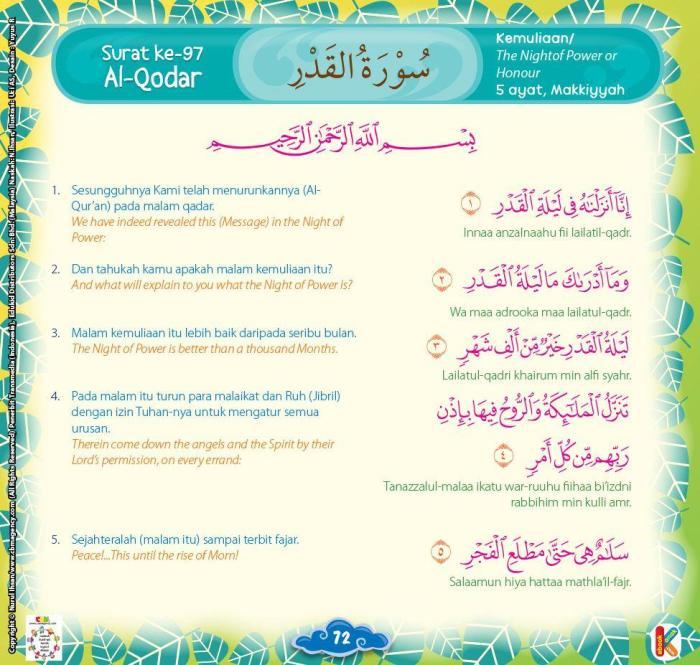 Surat ke-97
Al-Qodar
سُوْرَةُ الْقَدْرِ
Kemuliaan/
The Nightof Power or
Honour
5 ayat, Makkiyyah
بِسْمِ اللَّهِ الرَّحْمَٰنِ الرَّحِيمِ
1. Sesungguhnya Kami telah menurunkannya (Al-
Qur'an) pada malam qadar.
We have indeed revealed this (Message) in the Night of
Power:
إِنَّآ أَنزَلْنَٰهُ فِى لَيْلَةِ ٱلْقَدْرِ ١
Innaa anzalnaahu fii lailatil-qadr.
2. Dan tahukah kamu apakah malam kemuliaan itu?
And what will explain to you what the Night of Power is?
وَمَآ أَدْرَىٰكَ مَا لَيْلَةُ ٱلْقَدْرِ ٢
Wa maa adrooka maa lailatul-qadr.
3. Malam kemuliaan itu lebih baik daripada seribu bulan.
The Night of Power is better than a thousand Months.
لَيْلَةُ ٱلْقَدْرِ خَيْرٌ مِّنْ أَلْفِ شَهْرٍ ٣
Lailatul-qadri khairum min alfi syahr.
4. Pada malam itu turun para malaikat dan Ruh (Jibril)
dengan izin Tuhan-nya untuk mengatur semua
urusan.
Therein come down the angels and the Spirit by their
Lord's permission, on every errand:
تَنَزَّلُ ٱلْمَلَٰٓئِكَةُ وَٱلرُّوحُ فِيهَا بِإِذْنِ
رَبِّهِم مِّن كُلِّ أَمْرٍ ٤
Tanazzalul-malaa ikatu war-ruuhu fiihaa bi'izdni
rabbihim min kulli amr.
5. Sejahteralah (malam itu) sampai terbit fajar.
Peace!...This until the rise of Morn!
سَلَٰمٌ هِىَ حَتَّىٰ مَطْلَعِ ٱلْفَجْرِ ٥
Salaamun hiya hattaa mathla'il-fajr.
72
ebook